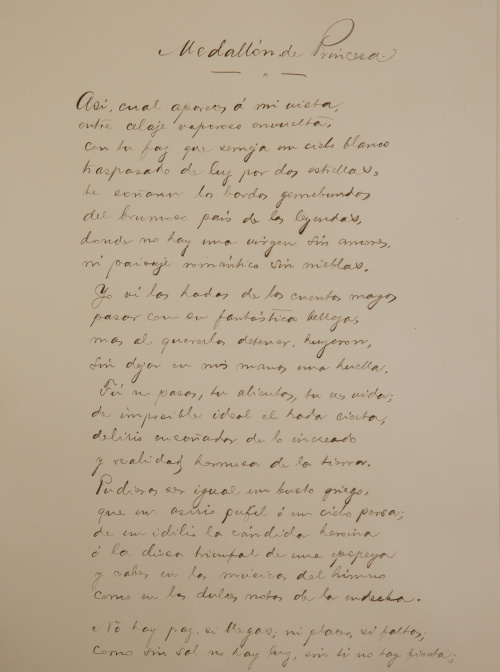 Medallón de Princesa
Asi, cual apareces á mi vista,
entre celaje vaporoso envuelta,
con tu faz que semeja un cielo blanco
traspasado de luz por dos estrellas,
te soñaron los bardos gemebundos
del brumoso país de las leyendas,
donde no hay una virgen sin amores,
ni paisaje romántico sin nieblas.
Yo vi las hadas de los cuentos magos
pasar con su fantástica belleza,
mas al quererlas detener, huyeron,
sin dejar en mis manos una huella.
Tú no pasas, tu alientas, tu es vida;
de imposible ideal el hada cierta,
delirio ensoñador de lo increado
y realidad hermosa de la tierra.
Pudieras ser igual un busto griego,
que un asirio perfil ó un ciclo persa;
de un idilio la cándida heroina
ó la diosa triunfal de una epopeya
y cabes en las músicas del himno
como en las dulces notas de la endecha.
No hay paz si llegas; ni placer, si faltas;
como sin sol no hay luz, sin ti no hay fiesta;